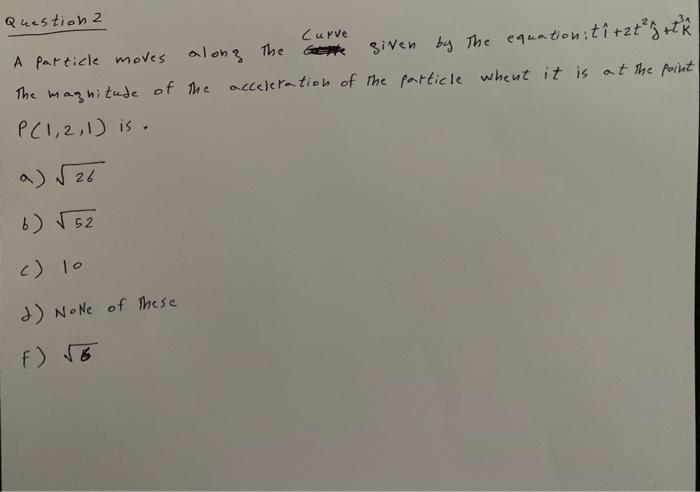 Question 2
A Particle moves along The Curve given by The equation: tî+2t²ĵ+t³k̂
The magnitude of The acceleration of The Particle whent it is at The Point
P(1,2,1) is .
a) √26
b) √52
c) 10
d) NoNe of These
f) √8